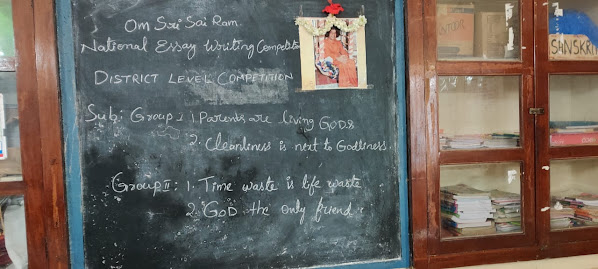 Om Sri Sai Ram.
National Essay Writing Competition
DISTRICT LEVEL COMPETITION
Sub: Group I 1. Parents are living GODS
2. Cleanliness is next to Godliness.
Group II: 1. Time waste is life waste
2. GOD the only friend.
SANSKRIT